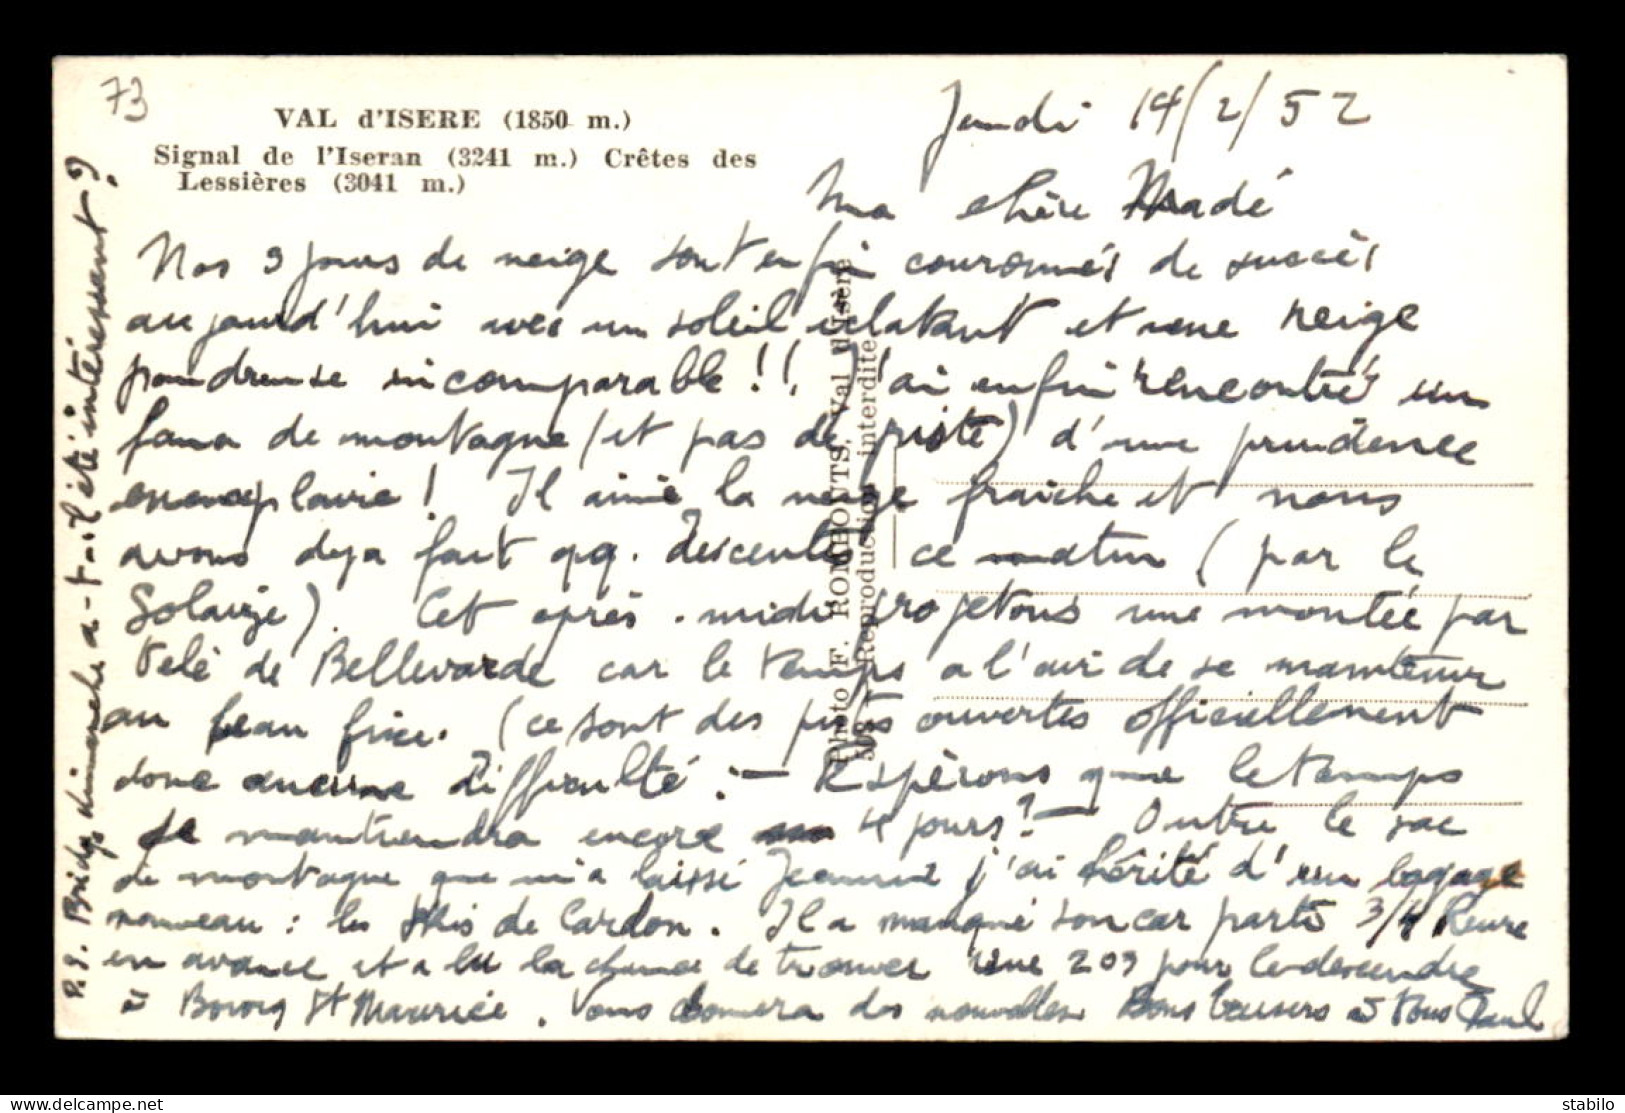 73
VAL d'ISERE (1850 m.)
Signal de l'Iseran (3241 m.) Crêtes des
Lessières (3041 m.)
Jeudi 14/2/52
Ma chère Madé
Nos 3 jours de neige sont enfin couronnés de succès
aujourd'hui avec un soleil éclatant et une neige
poudreuse incomparable !! J'ai enfin rencontré un
fana de montagne (et pas de piste) d'une prudence
exemplaire ! Il aime la neige fraîche et nous
avons déjà fait qq. descentes ce matin (par le
Solaize). Cet après-midi projetons une montée par
télé de Bellevarde car le temps a l'air de se maintenir
au beau fixe. (ce sont des pistes ouvertes officiellement
donc aucune difficulté. — Espérons que le temps
se maintiendra encore 4 jours ? — Outre le sac
de montagne que m'a laissé Jeannine j'ai hérité d'un bagage
nouveau : les skis de Cardon. Il a manqué son car parti 3/4 heure
en avance et a eu la chance de trouver une 203 pour le descendre
à Bourg St Maurice. Vous donnera des nouvelles. Bons baisers à tous Paul
P.S. Bridge dimanche a-t-il été intéressant ?
Photo F. ROMBOUTS, Val d'Isère
Reproduction interdite